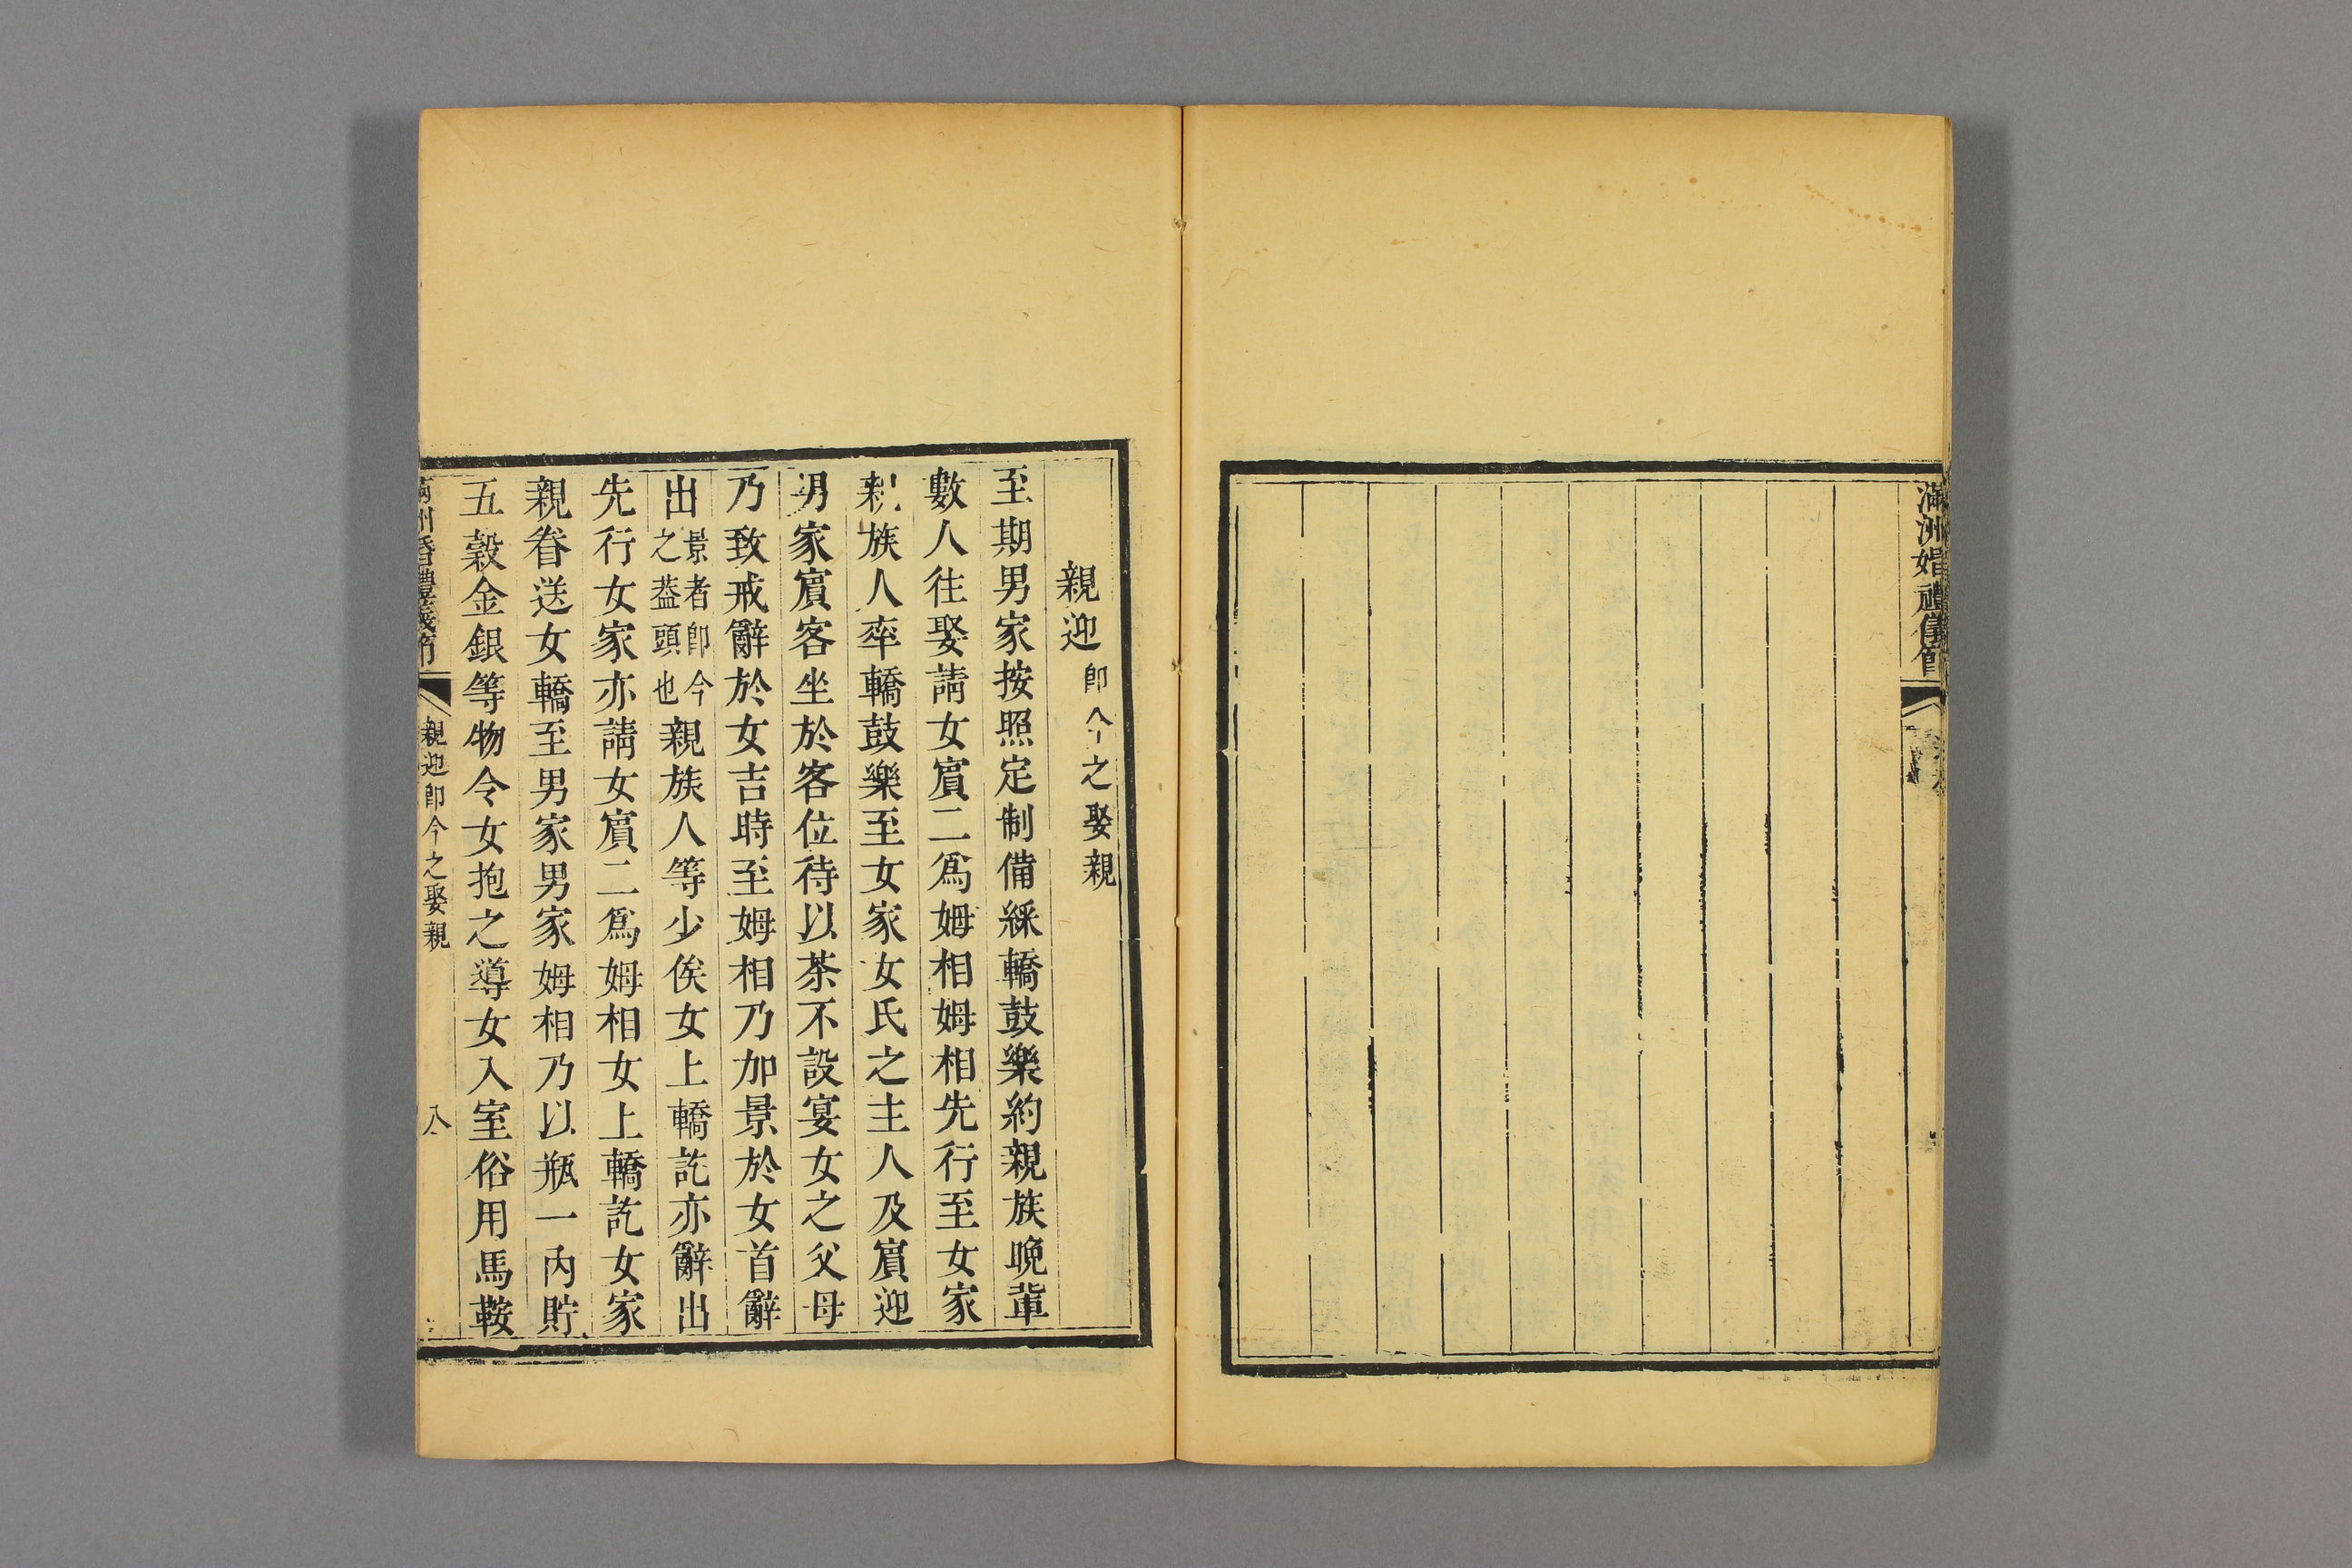 滿洲婚禮儀節
親迎即今之娶親
至期男家按照定制備綵轎鼓樂約親族晚輩
數人往娶請女賓二爲姆相姆相先行至女家
親族人率轎鼓樂至女家女氏之主人及賓迎
男家賓客坐於客位待以茶不設宴女之父母
乃致戒辭於女吉時至姆相乃加景於女首辭
出景者即今之蓋頭也親族人等少俟女上轎訖亦辭出
先行女家亦請女賓二爲姆相女上轎訖女家
親眷送女轎至男家男家姆相乃以瓶一內貯
五穀金銀等物令女抱之導女入室俗用馬鞍
滿洲婚禮儀節 親迎即今之娶親 八